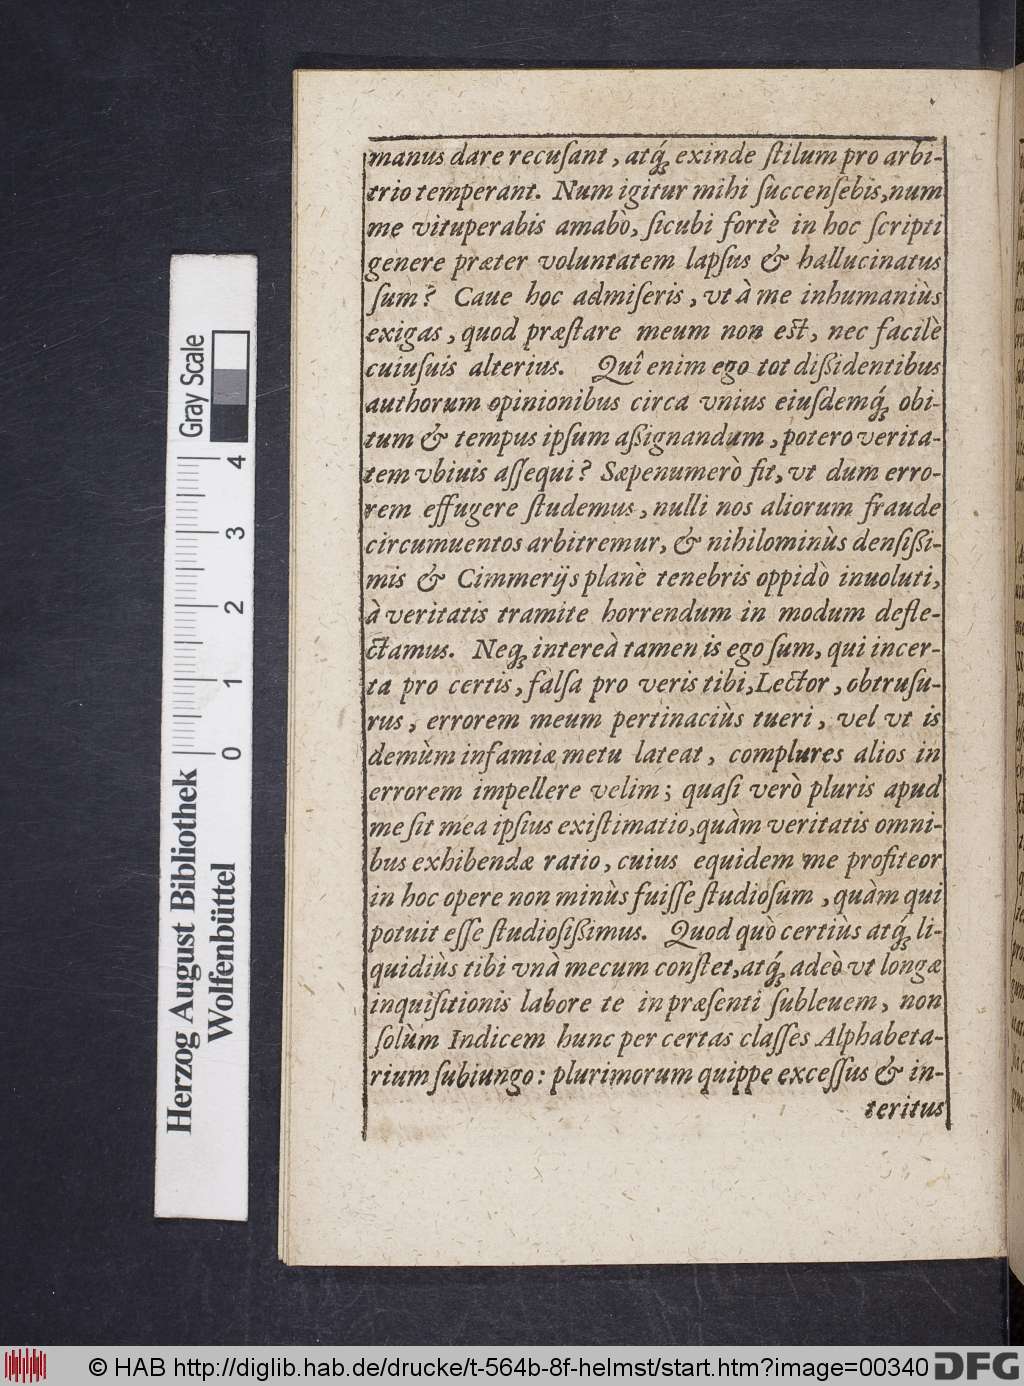 manus dare recuſant, atq́; exinde ſtilum pro arbi-
trio temperant. Num igitur mihi ſuccenſebis, num
me vituperabis amabò, ſicubi fortè in hoc ſcripti
genere præter voluntatem lapſus & hallucinatus
ſum? Caue hoc admiſeris, vt à me inhumaniùs
exigas, quod præſtare meum non eſt, nec facilè
cuiuſuis alterius. Quî enim ego tot dißidentibus
authorum opinionibus circa vnius eiuſdemq́; obi-
tum & tempus ipſum aßignandum, potero verita-
tem vbiuis aſſequi? Sæpenumerò fit, vt dum erro-
rem effugere ſtudemus, nulli nos aliorum fraude
circumuentos arbitremur, & nihilominùs denſißi-
mis & Cimmerijs planè tenebris oppidò inuoluti,
à veritatis tramite horrendum in modum defle-
ctamus. Neq; intereà tamen is ego ſum, qui incer-
ta pro certis, falſa pro veris tibi, Lector, obtruſu-
rus, errorem meum pertinaciùs tueri, vel vt is
demùm infamiæ metu lateat, complures alios in
errorem impellere velim; quaſi verò pluris apud
me ſit mea ipſius exiſtimatio, quàm veritatis omni-
bus exhibendæ ratio, cuius equidem me profiteor
in hoc opere non minùs fuiſſe ſtudioſum, quàm qui
potuit eſſe ſtudioſißimus. Quod quò certiùs atq́; li-
quidiùs tibi vnà mecum conſtet, atq́; adeò vt longæ
inquiſitionis labore te in præſenti ſubleuem, non
ſolùm Indicem hunc per certas claſſes Alphabeta-
rium ſubiungo: plurimorum quippe exceſſus & in-
teritus
Gray Scale
0 1 2 3 4
Herzog August Bibliothek
Wolfenbüttel
© HAB http://diglib.hab.de/drucke/t-564b-8f-helmst/start.htm?image=00340 DFG